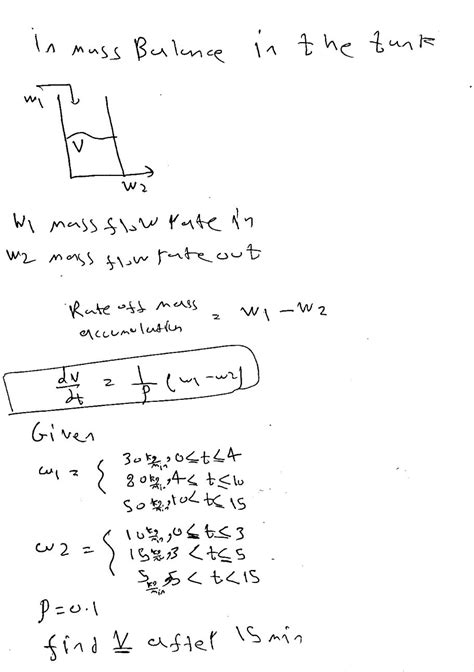 In mass Balance in the tank
w1
V
w2
w1 mass flow rate in
w2 mass flow rate out
Rate off mass accumulation = w1 - w2
dv/dt = 1/ρ (w1 - w2)
Given
w1 = { 30 kg/min, 0 ≤ t ≤ 4
80 kg/min, 4 ≤ t ≤ 10
50 kg/min, 10 < t ≤ 15
w2 = { 10 kg/min, 0 ≤ t ≤ 3
15 kg/min, 3 < t ≤ 5
5 kg/min, 5 < t < 15
ρ = 0.1
find V after 15 min